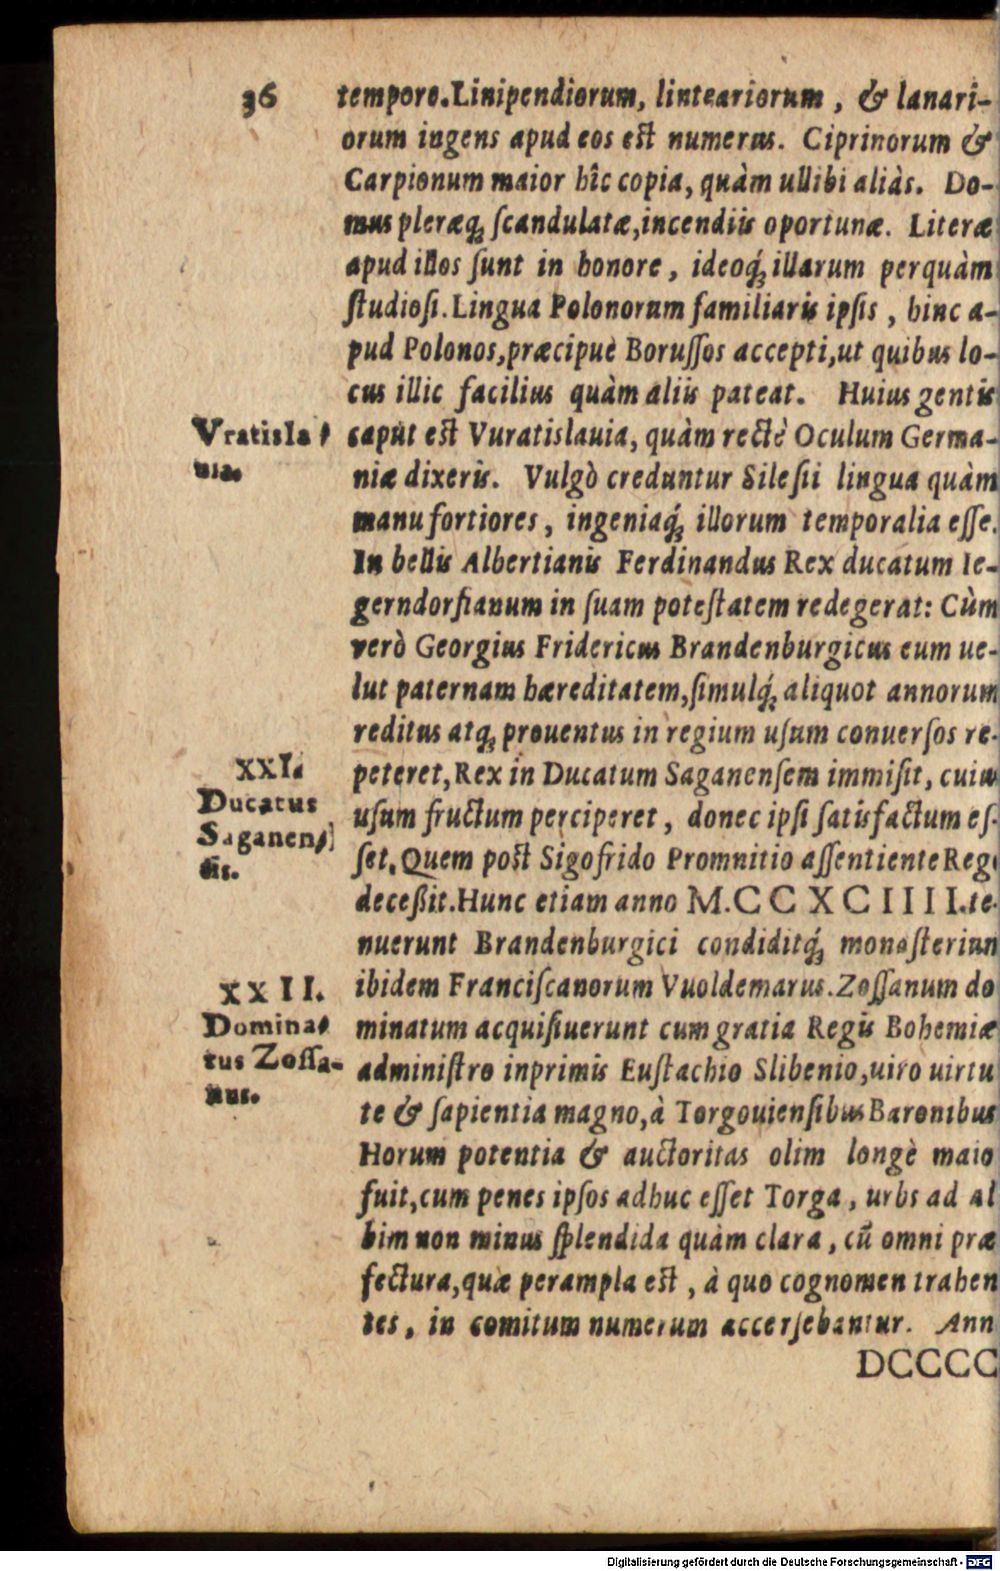 36
tempore. Linipendiorum, linteariorum, & lanari-
orum ingens apud eos est numerus. Ciprinorum &
Carpionum maior hîc copia, quàm ullibi aliàs. Do-
mus pleræq́; ſcandulatæ, incendiis oportunæ. Literæ
apud illos ſunt in honore, ideoq́; illarum perquàm
ſtudioſi. Lingua Polonorum familiaris ipſis, hinc a-
pud Polonos, præcipuè Boruſſos accepti, ut quibus lo-
cus illic facilius quàm aliis pateat. Huius gentis
Vratisla-
uia.
caput est Vuratislauia, quàm rectè Oculum Germa-
niæ dixeris. Vulgò creduntur Sileſii lingua quàm
manu fortiores, ingeniaq́; illorum temporalia eſſe.
In bellis Albertianis Ferdinandus Rex ducatum Ie-
gerndorfianum in ſuam poteſtatem redegerat: Cùm
verò Georgius Fridericus Brandenburgicus eum ue-
lut paternam hæreditatem, ſimulq́; aliquot annorum
reditus atq; prouentus in regium uſum conuerſos re-
XXI.
Ducatus
Saganen-
ſis.
peteret, Rex in Ducatum Saganenſem immiſit, cuius
uſum fructum perciperet, donec ipſi ſatisfactum eſ-
ſet. Quem post Sigofrido Promnitio aſſentiente Regi
deceßit. Hunc etiam anno M.CCXCIIII. te-
nuerunt Brandenburgici condiditq́; monaſterium
XXII.
Domina-
tus Zoſſa-
nus.
ibidem Franciſcanorum Vuoldemarus. Zoſſanum do
minatum acquiſiuerunt cum gratia Regis Bohemiæ
adminiſtro inprimis Euſtachio Slibenio, uiro uirtu
te & ſapientia magno, à Torgouienſibus Baronibus
Horum potentia & auctoritas olim longè maio
fuit, cum penes ipſos adhuc eſſet Torga, urbs ad Al
bim non minus ſplendida quàm clara, cū omni præ
fectura, quæ perampla est, à quo cognomen trahen
tes, in comitum numerum accerſebantur. Ann
DCCCC
Digitalisierung gefördert durch die Deutsche Forschungsgemeinschaft - DFG